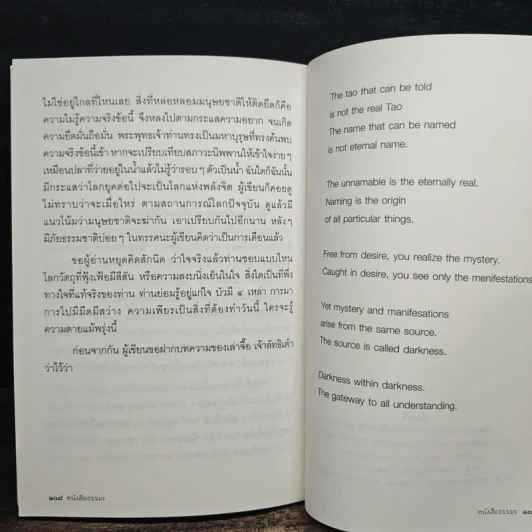 ไม่ใช่อยู่ใกลที่ไหนเลย สิ่งที่หล่อหลอมมนุษยชาติให้ติดยึดก็คือ
ความไม่รู้ความจริงข้อนี้ จึงหลงไปตามกระแสความอยาก จนเกิด
ความยึดมั่นถือมั่น พระพุทธเจ้าท่านทรงเป็นมหาบุรุษที่ทรงค้นพบ
ความจริงข้อนี้เข้า หากจะเปรียบเทียบสภาวะนิพพานให้เข้าใจง่ายๆ
เหมือนปลาที่ว่ายอยู่ในน้ำแล้วไม่รู้ว่ารอบๆ ตัวเป็นน้ำ ฉันใดก็ฉันนั้น
มีกระแสว่าโลกยุคต่อไปจะเป็นโลกแห่งพลังจิต ผู้เขียนก็คอยดู
ไม่ทราบว่าจะเมื่อไหร่ ตามสถานการณ์โลกปัจจุบัน ดูแล้วมี
แนวโน้มว่ามนุษยชาติจะฆ่ากัน เอาเปรียบกันไปอีกนาน หลังๆ
มีภัยธรรมชาติบ่อยๆ ในทรรศนะผู้เขียนคิดว่าเป็นการเตือนแล้ว
ขอผู้อ่านหยุดคิดสักนิด ว่าใจจริงแล้วท่านชอบแบบไหน
โลกวัตถุที่ฟุ้งเฟ้อมีสีสัน หรือความสงบนิ่งเย็นในใจ สิ่งใดเป็นที่พึ่ง
ทางใจที่แท้จริงของท่าน ท่านย่อมรู้อยู่แก่ใจ บัวมี ๔ เหล่า การมา
การไปมีมืดมีสว่าง ความเพียรเป็นสิ่งที่ต้องทำวันนี้ ใครจะรู้
ความตายแม้พรุ่งนี้
ก่อนจากกัน ผู้เขียนขอฝากบทความของเล่าจื๊อ เจ้าลัทธิเต๋า
ว่าไว้ว่า
๑๐๘ หนังสือธรรมะ
The tao that can be told
is not the real Tao
The name that can be named
is not eternal name.
The unnamable is the eternally real.
Naming is the origin
of all particular things.
Free from desire, you realize the mystery.
Caught in desire, you see only the menifestations
Yet mystery and manifesations
arise from the same source.
The source is called darkness.
Darkness within darkness.
The gateway to all understanding.
หนังสือธรรมะ